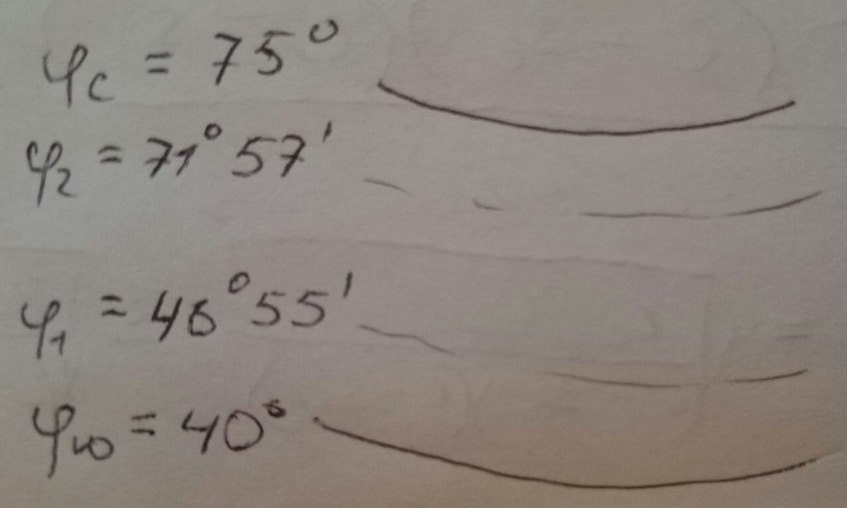 φс = 75°
φ2 = 71° 57'
φ1 = 46° 55'
φю = 40°